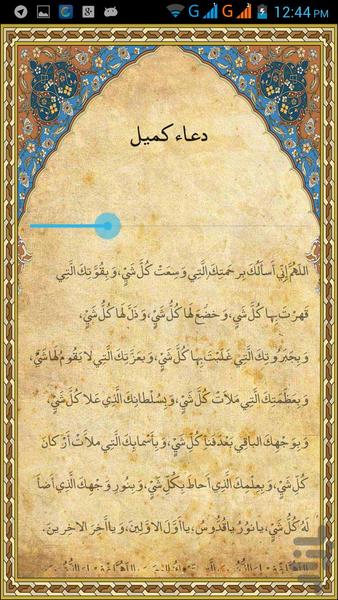 12:44 PM
دعاء كميل
اَللّهُمَّ اِنّي اَسأَلُكَ بِرَحمَتِكَ الَّتي وَسِعَت كُلَّ شَيْيٍ، وَ بِقُوَّتِكَ الَّتي
قَهَرتَ بِها كُلَّ شَيْيٍ، وَ خَضَعَ لَها كُلُّ شَيْيٍ، وَ ذَلَّ لَها كُلُّ شَيْيٍ،
وَ بِجَبَرُوتِكَ الَّتي غَلَبْتَ بِها كُلَّ شَيْيٍ، وَ بِعِزَّتِكَ الَّتي لا يَقُومُ لَها شَيْيٌ،
وَ بِعَظَمَتِكَ الَّتي مَلَأَت كُلَّ شَيْيٍ، وَ بِسُلطانِكَ الَّذي عَلا كُلَّ شَيْيٍ،
وَ بِوَجهِكَ الباقي بَعدَ فَنا كُلِّ شَيْيٍ، وَ بِأَسمائِكَ الَّتي مَلَأَت أَركانَ
كُلِّ شَيْيٍ، وَ بِعِلمِكَ الَّذي أَحاطَ بِكُلِّ شَيْيٍ، وَ بِنُورِ وَجهِكَ الَّذي أَضاَ
لَهُ كُلُّ شَيْيٍ، يا نُورُ يا قُدُّوسُ، يا أَوَّلَ الاَوَّلينَ، وَ يا آخِرَ الاخِرينَ.